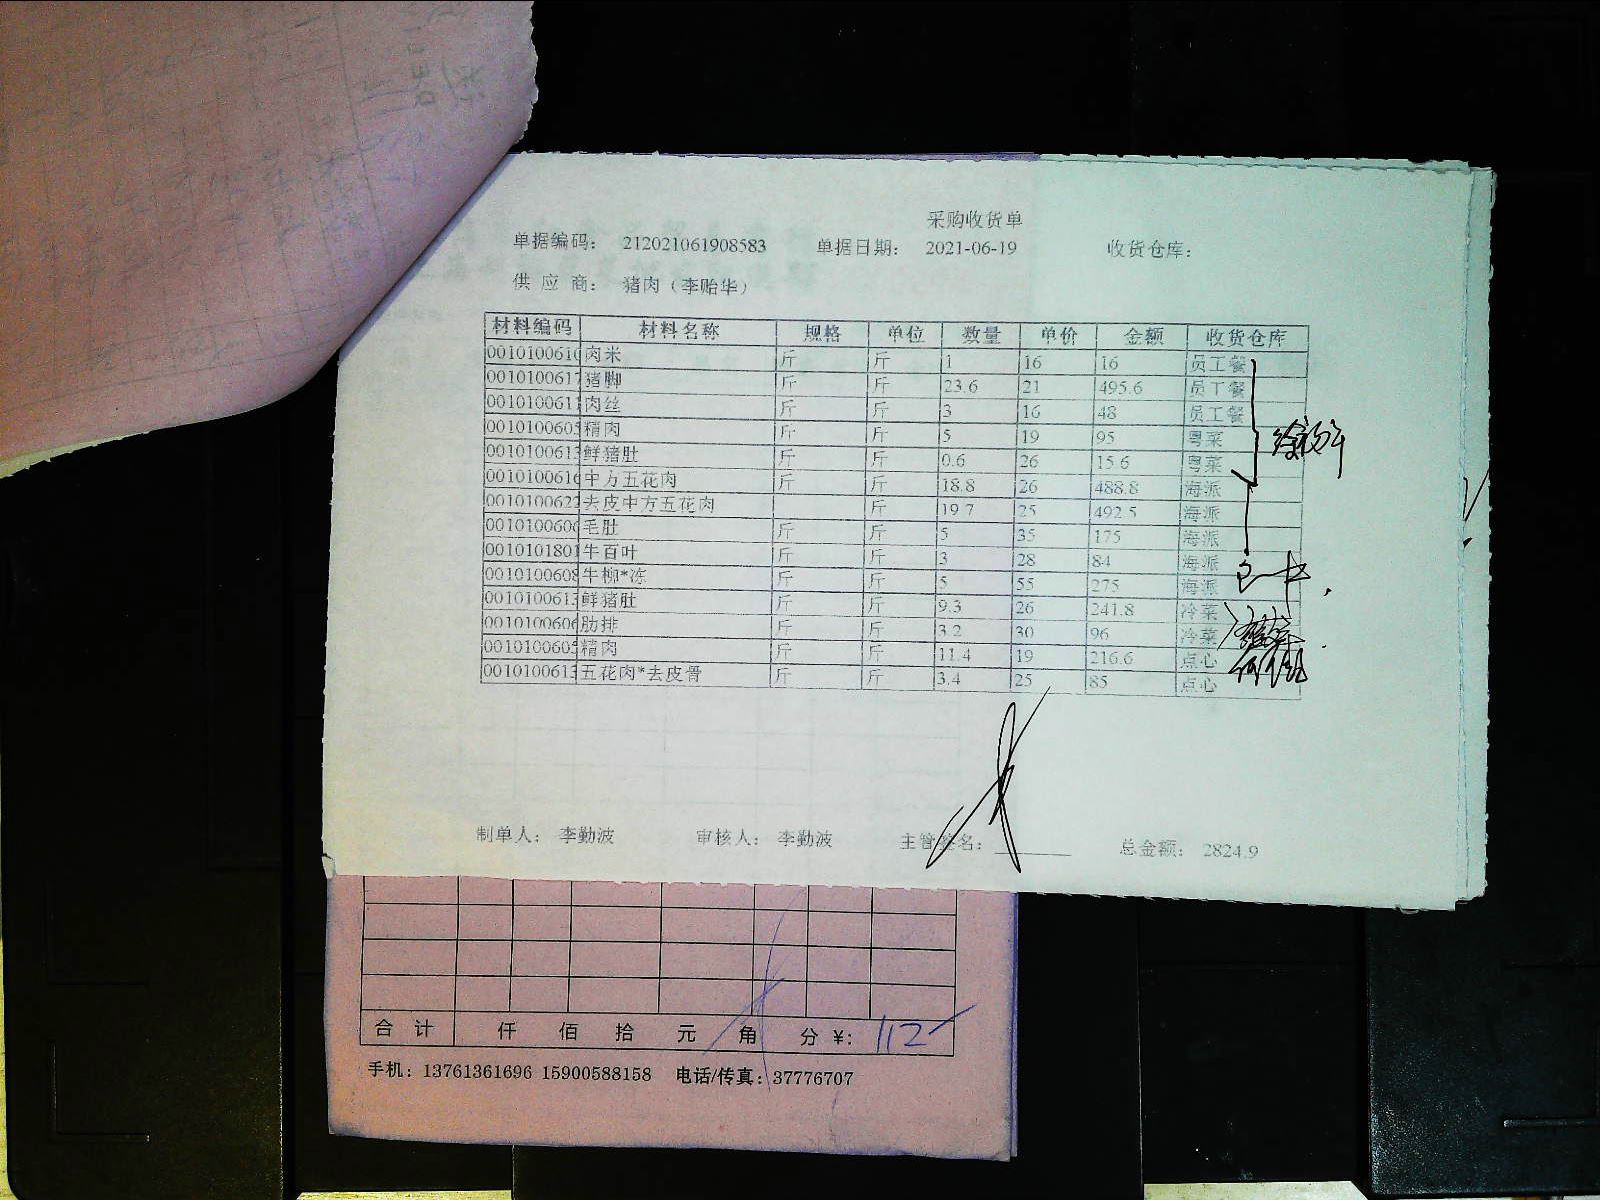 采购收货单
单据编码： 212021061908583 单据日期： 2021-06-19 收货仓库：
供 应 商： 猪肉（李贻华）
材料编码 材料名称 规格 单位 数量 单价 金额 收货仓库
0010100610 肉米 斤 斤 1 16 16 员工餐
0010100617 猪脚 斤 斤 23.6 21 495.6 员工餐
0010100611 肉丝 斤 斤 3 16 48 员工餐
0010100605 精肉 斤 斤 5 19 95 粤菜
0010100613 鲜猪肚 斤 斤 0.6 26 15.6 粤菜
0010100616 中方五花肉 斤 斤 18.8 26 488.8 海派
0010100622 去皮中方五花肉 斤 19.7 25 492.5 海派
0010100606 毛肚 斤 斤 5 35 175 海派
0010101801 牛百叶 斤 斤 3 28 84 海派
0010100608 牛柳*冻 斤 斤 5 55 275 海派
0010100613 鲜猪肚 斤 斤 9.3 26 241.8 冷菜
0010100606 肋排 斤 斤 3.2 30 96 冷菜
0010100605 精肉 斤 斤 11.4 19 216.6 点心
0010100613 五花肉*去皮骨 斤 斤 3.4 25 85 点心
制单人： 李勤波 审核人： 李勤波 主管签名： 总金额： 2824.9
合 计 仟 佰 拾 元 角 分 ¥: 112
手机：13761361696 15900588158 电话/传真：37776707